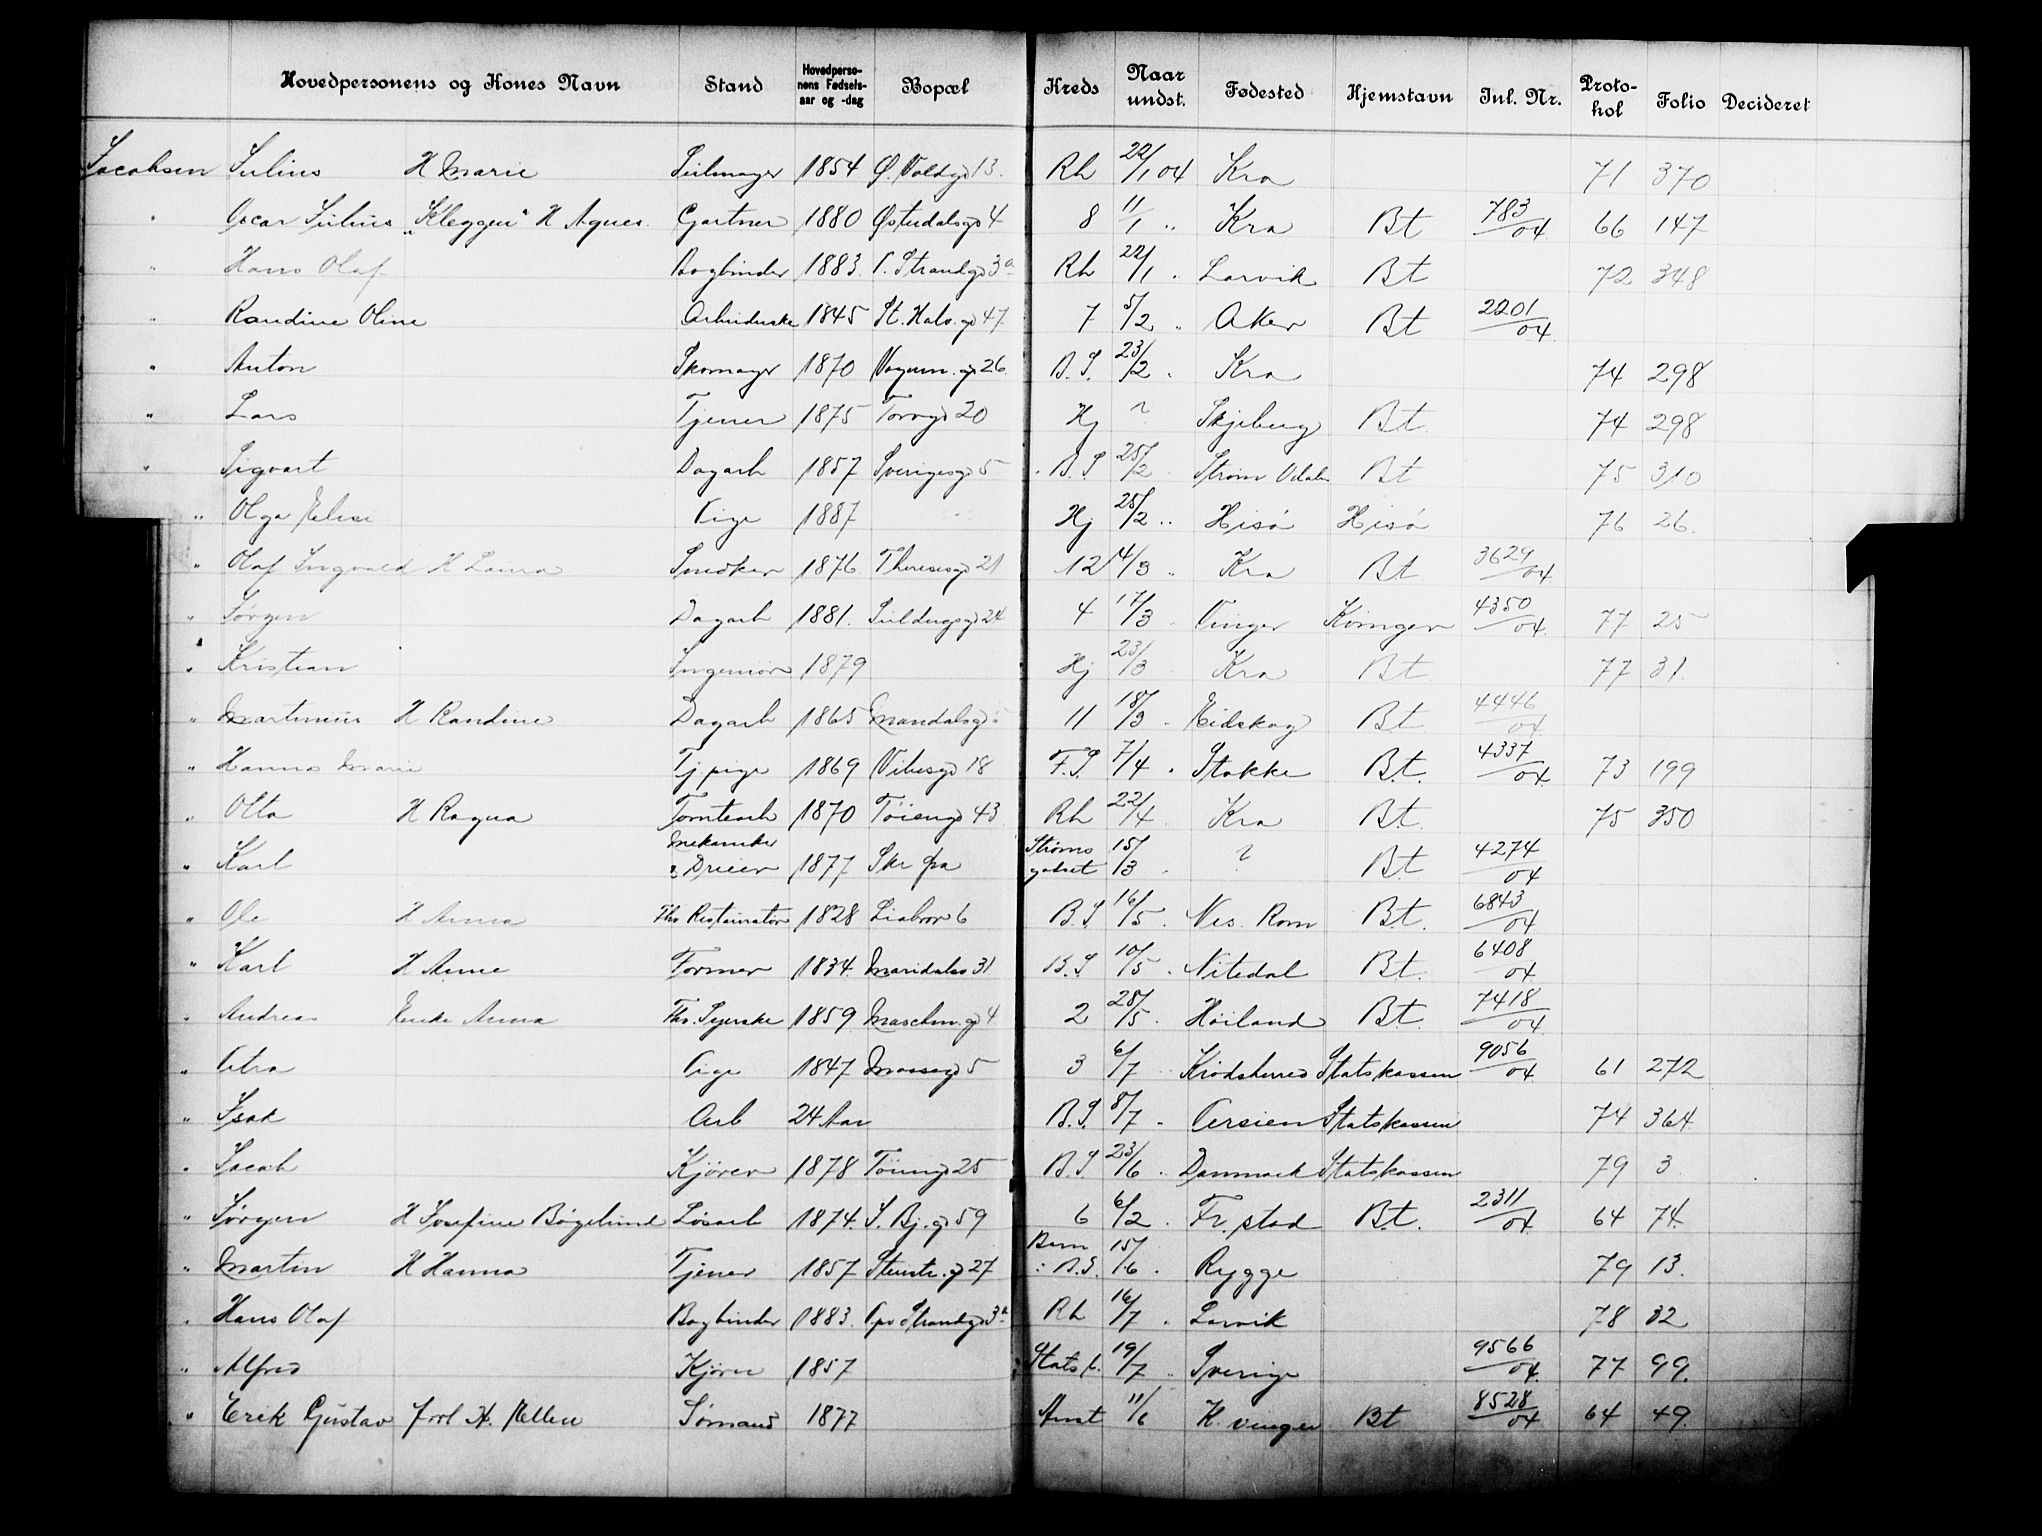 Hovedpersonens og Kones Navn Stand Hovedperso-nens Fødsels-aar og -dag Bopæl Kreds Naar undst. Fødested Hjemstavn Inl. Nr. Proto-kol Folio Decideret
Jacobsen Julius H Marie Seilmager 1854 Ø. Voldgd 13. Rh 22/1 04 Kra 71 370
" Oscar Julius "Kleggen" H Agnes. Gartner 1880 Østerdalsgd 4 8 11/1 " Kra Bt 783/04 66 147
" Hans Olaf Bogbinder 1883. P. Strandgd 3a Rh 22/1 " Larvik Bt 72 348
" Randine Oline Arbeiderske 1845 St. Halv. gd 47 7 5/2 " Aker Bt 2201/04
" Anton Skomager 1870 Vognm. gd 26 B.S. 23/2 " Kra 74 298
" Lars Tjener 1875 Torvgd 20 Hj " Skjeberg Bt 74 298
" Sigvart Dagarb 1857 Sverigesgd 5 B.S 25/2 Strøm Odalen Bt 75 310
" Olga Elise Pige 1887 Hj 25/2 " Hisö Hisö 76 26.
" Olaf Ingvald H Laura Snedker 1876 Theresesgd 21 12 14/3 " Kra Bt 3629/04
" Jørgen Dagarb 1881. Seildugsgd 24 4 17/3 Vinger Kvinger 4350/04 77 25
" Kristian Ingeniör 1879 Hj 23/3 Kra Bt 77 31.
" Martinius H Randine Dagarb 1865 Mandalsgd 5 11 18/3 " Eidskog Bt 4446/04
" Hanna Marie Tj.pige 1869 Vibesgd 18 F.S. 7/4 " Stokke Bt. 4337/04 73 199
" Otto H Ragna Tomtearb 1870 Töiengd 43 Rh 22/4 Kra Bt. 75 350
" Karl Mekaniker & Dreier 1877 Skr fra Strømsgodset 15/3 " ? Bt 4274/04
" Ole H Anna Fhv Restauratør 1828 Liabror 6 B.S 16/5 " Nes. Rom Bt. 6843/04
" Karl H Anne Former 1834. Maridalsv 31 B.S 10/5 " Nitedal Bt. 6408/04
" Andreas Enke Anna Fhv. Syerske 1859 Maschin. gd 4 2 25/5 " Höiland Bt. 7418/04
" Petra Pige 1847 Mossegd 5 3 6/7 Krödsherred Statskassen 9056/04 61 272
" Isak Arb 24 Aar B.S. 8/7 " Persien Statskassen 74 364
" Jacob Kjörer 1878 Töiengd 25 B.S 23/6 " Danmark Statskassen 79 3
" Jørgen H Josefine Bögelund Løsarb 1874. S. Bj. gd 59 6 6/2 " Fr. stad Bt. 2311/04 64 74.
" Martin H Hanna Tjener 1857 Stenstr. gd 27 Barn i B.S. 15/6 " Rygge 79 13.
" Hans Olaf Bogbinder 1883. P. Strandgd 3a Rh 16/7 " Larvik 78 32
" Alfred Kjörer 1857 Statsk. 19/7 " Sverige 9566/04. 77 99.
" Erik Gustav forl H. Ellen Sömand 1877 Amt 11/6 K. vinger Bt 8528/04 64 49.